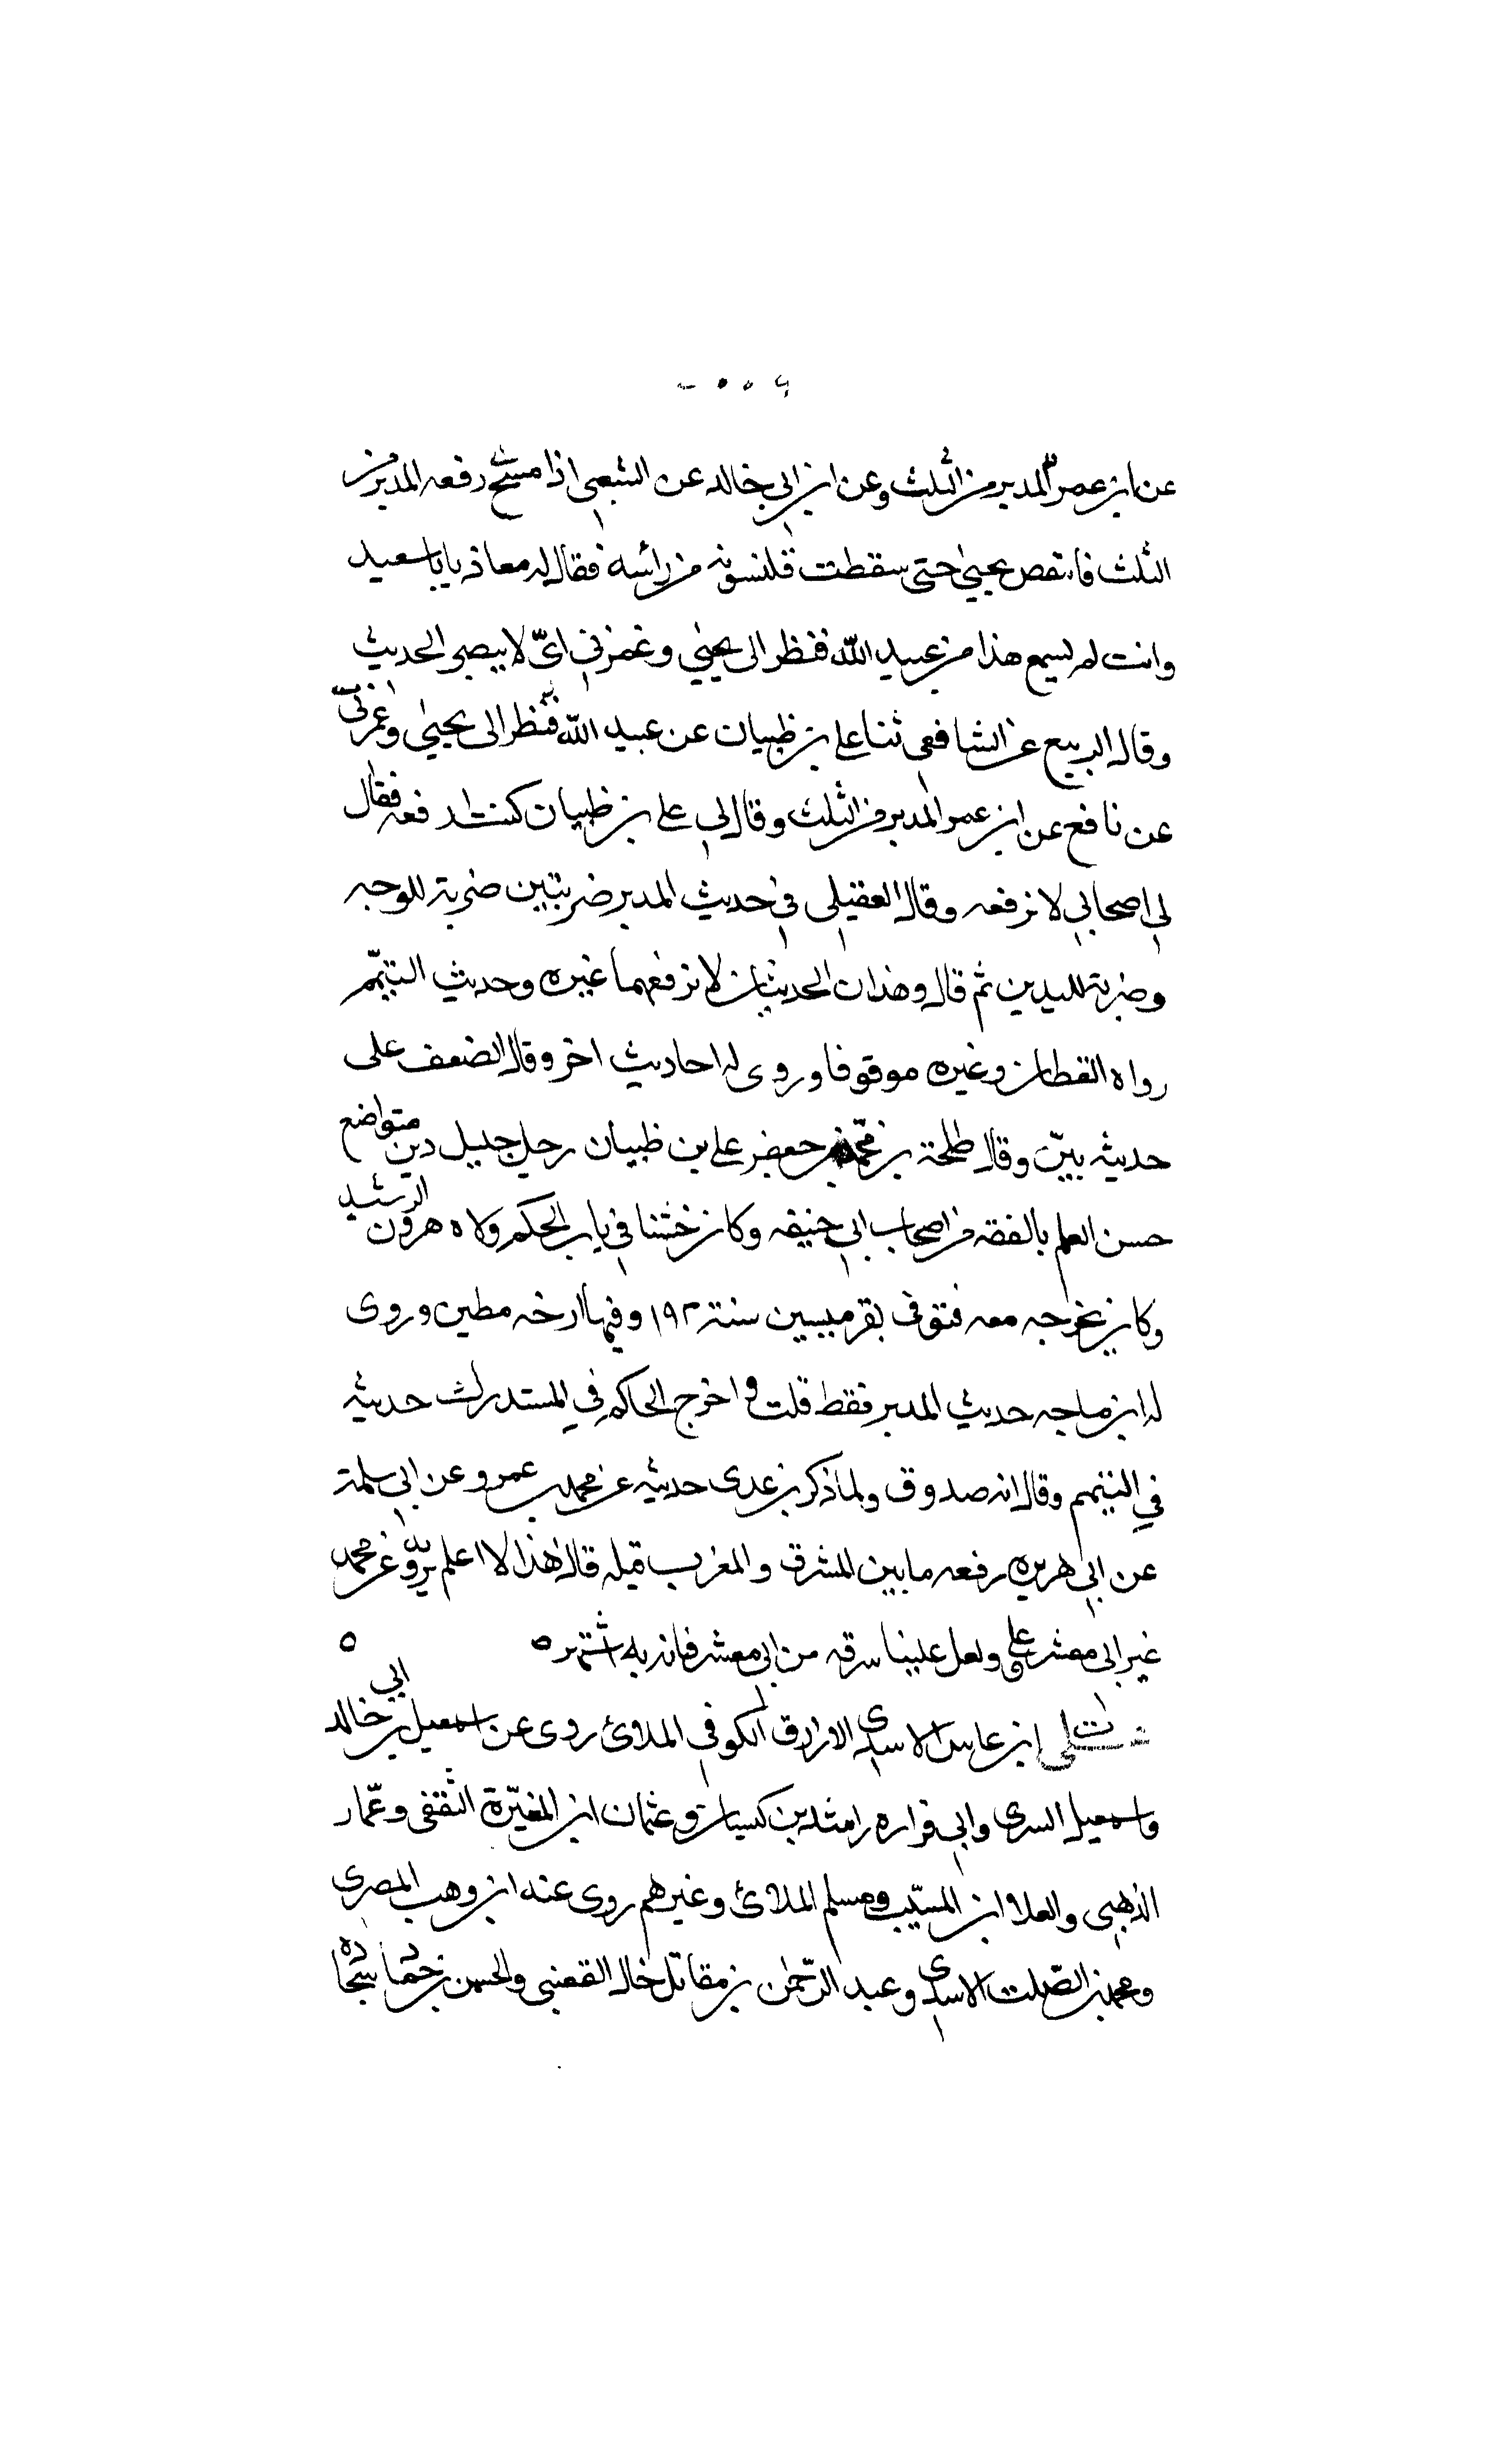 عن ابن عمر المدبر من الثلث وعن ابن ابي خالد عن الشعبي اذا رفعه المدبر من
الثلث فانتفض يحيى حتى سقطت قلنسوته من راسه فقال له معاذ يابا سعيد
وانت لم تسمع هذا من عبيد الله فنظر الى يحيى وغمزني اي لا يبصر الحديث
وقال الربيع عن الشافعي ثنا علي بن ظبيان عن عبيد الله فنظر الى يحيى وغمزني
عن نافع عن ابن عمر المدبر من الثلث وقال لي علي بن ظبيان كنت ارفعه فقال
لي اصحابي لا ترفعه وقال العقيلي في حديث المدبر ضربتين ضربة للوجه
وضربة لليدين ثم قال وهذان الحديثان لا يرفعهما غيره وحديث التيمم
رواه القطان وغيره موقوفا وروى له احاديث اخر وقال الضعف على
حديثه بيّن وقال طلحة بن محمد بن جعفر علي بن ظبيان رجل جليل دين متواضع
حسن العلم بالفقه من اصحاب ابي حنيفه وكان خشنا في باب الحكم ولاه هرون الرشيد
وكان يخرجه معه فتوفى بقرميسين سنة ١٩٢ وفيها ارخه مطين وروى
له ابن ماجه حديث المدبر فقط قلت واخرج الحاكم في المستدرك حديثه
في التيمم وقال انه صدوق ولما ذكر بن عدى حديثه عن محمد بن عمرو عن ابي سلمة
عن ابي هريره رفعه ما بين المشرق والمغرب قبله قال هذا لا اعلم يرويه عن محمد
غير ابي معشر ولعل عليا سرقه من ابي معشر فانه به اشتهر ه ه
ابن عابس الاسدى الازرق الكوفي الملائ روى عن اسمعيل بن ابي خالد
واسمعيل السدى وابي فزاره راشد بن كيسان وعثمان ابن المغيرة الثقفى وعمار
الذهبي والعلا ابن المسيب ومسلم الملائ وغيرهم روى عنه ابن وهب المصرى
ومحمد بن الصلت الاسدى وعبد الرحمن بن مقاتل خال القعنبي والحسن بن حماد سجاده